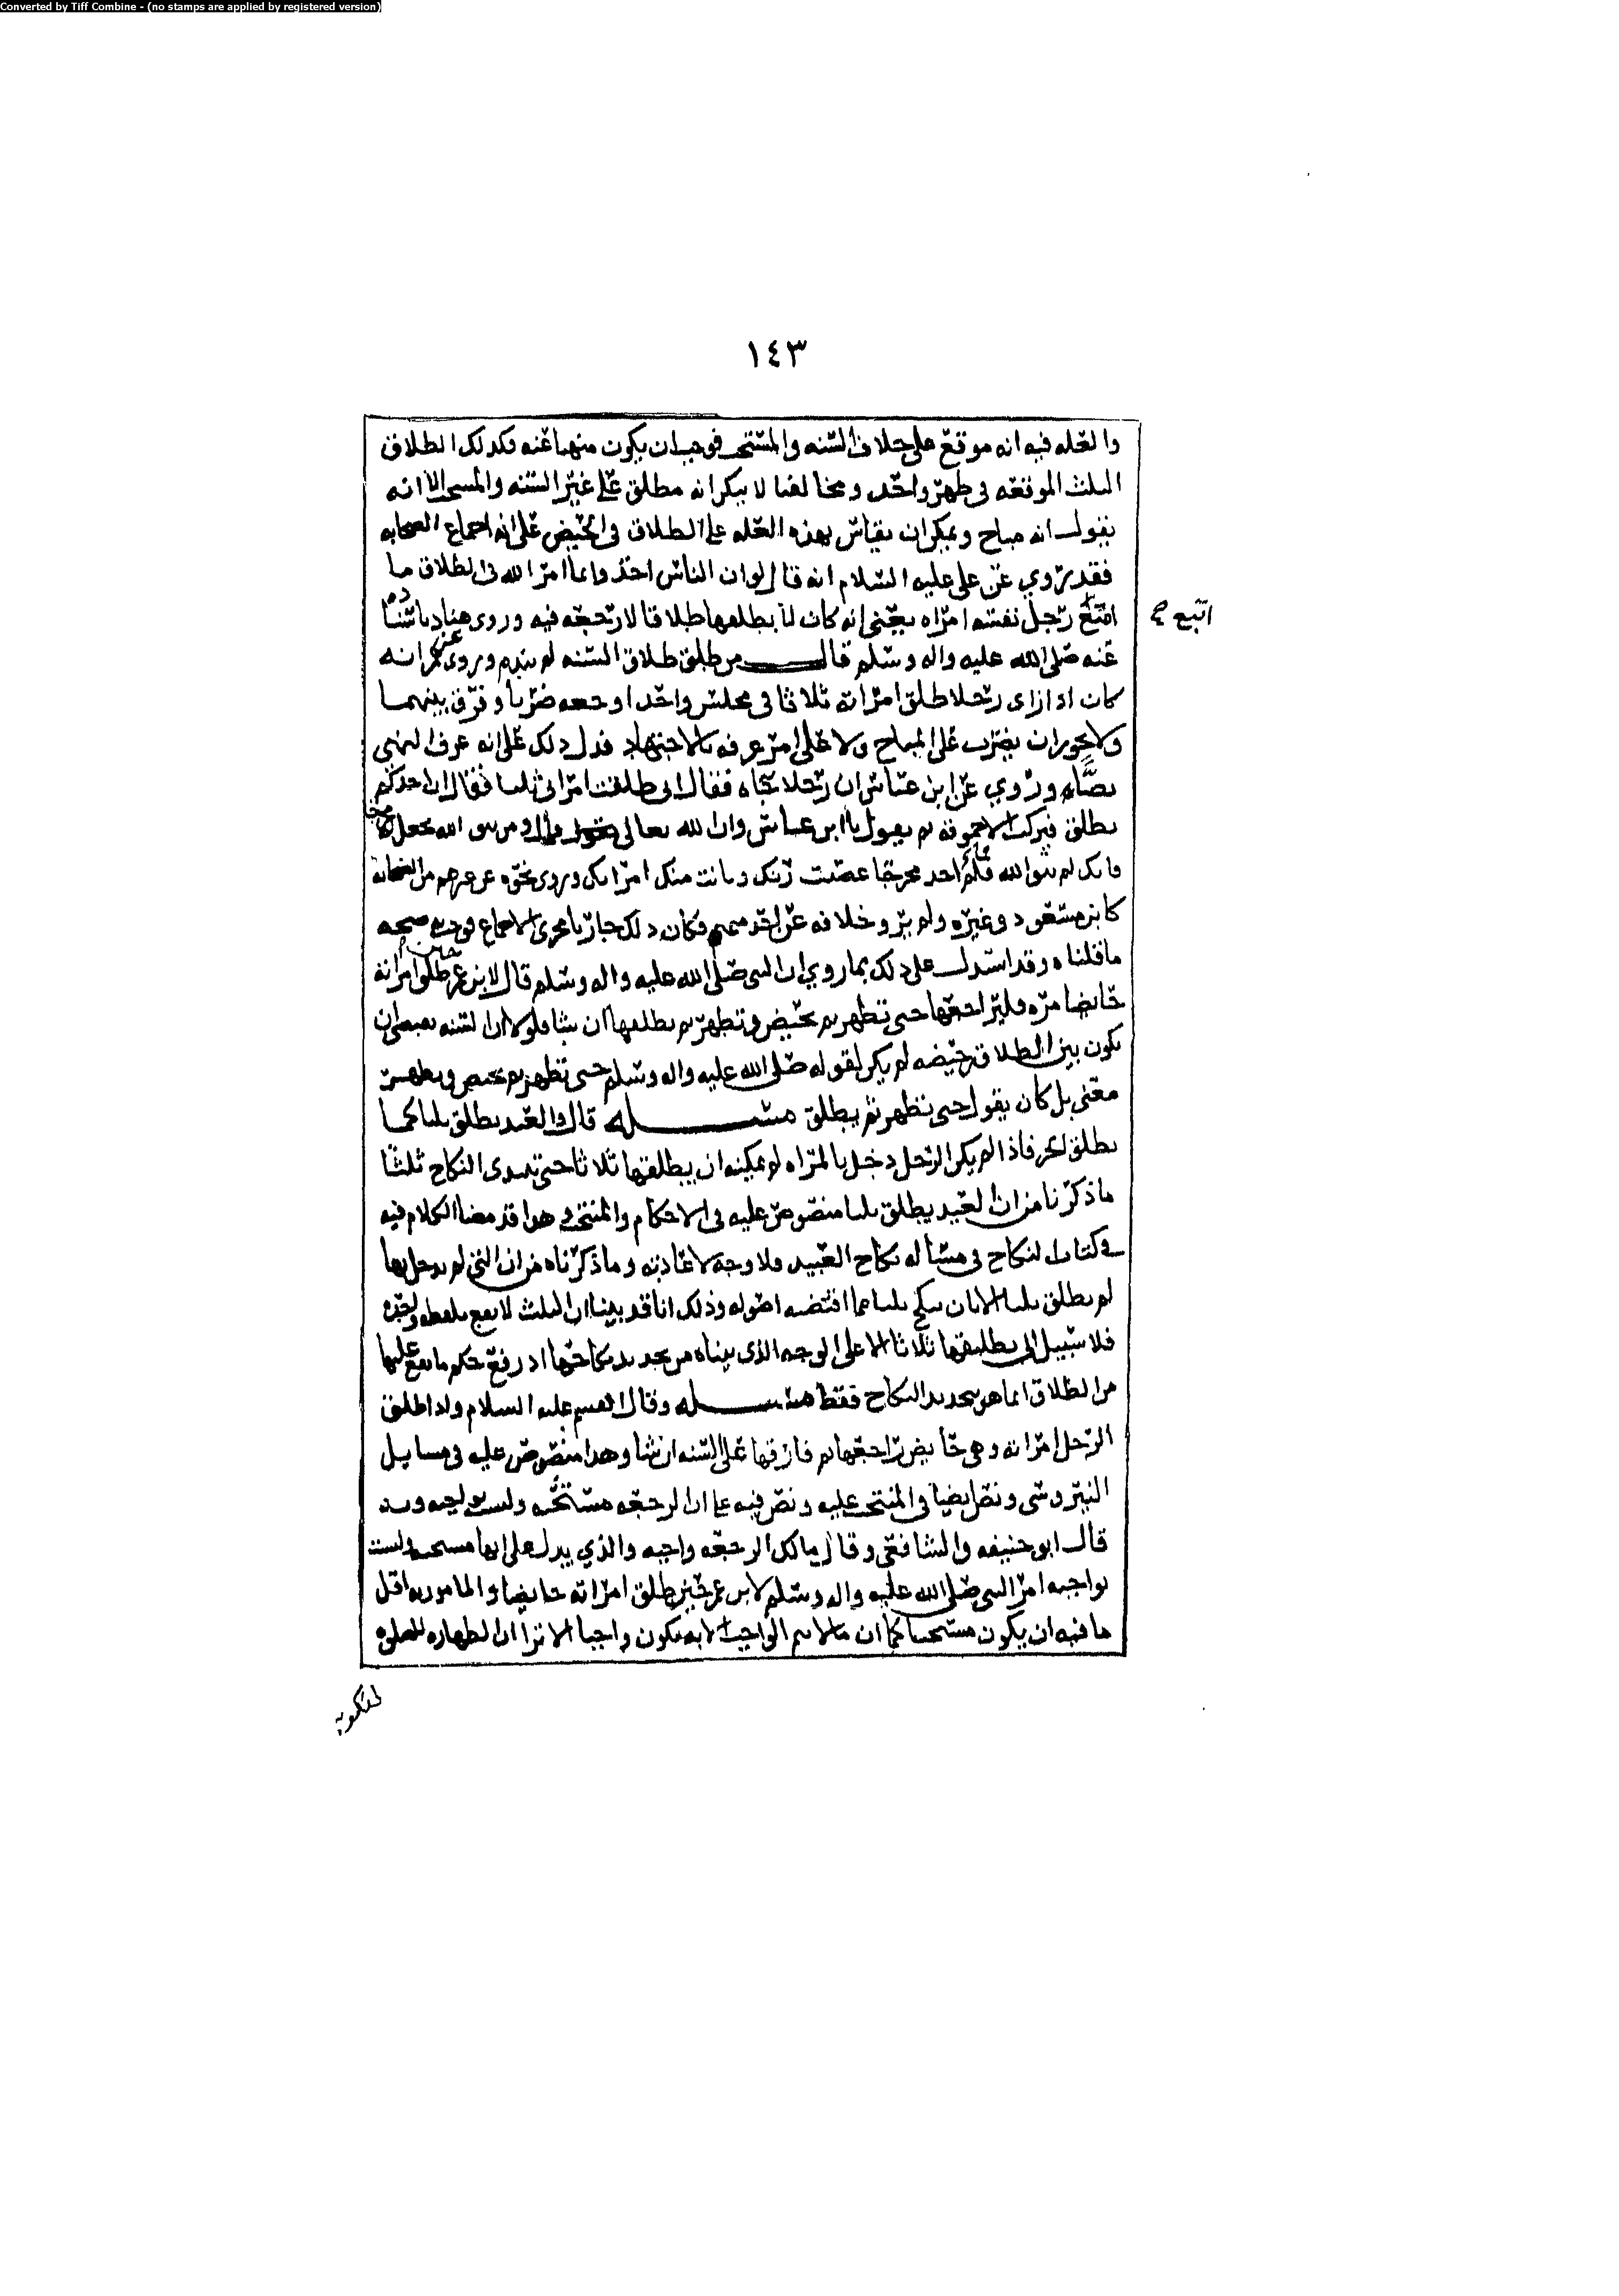 Converted by Tiff Combine - (no stamps are applied by registered version)
١٤٣
والعله فيه انه موقع على خلاف السنه والمستحب فوجب ان يكون منهيا عنه وكذلك الطلاق
الثلث الموقعه في طهر واحد ومخالفنا لا ينكر انه مطلق على غير السنه والمستحب الا انه
يقول انه مباح ويمكن ان يقاس بهذه العله على الطلاق في الحيض على انه اجماع الصحابه
فقد روي عن علي عليه السلام انه قال لو ان الناس اخذوا بما امر الله في الطلاق ما
اتبع رجل نفسه امراه يعني انه كان لا يطلقها طلاقا لا رجعه فيه وروى هناد باسناده
اتبع
عنه صلى الله عليه واله وسلم قال من طلق طلاق السنه لم يندم وروى عن عمر انه
كان اذا راى رجلا طلق امراته ثلاثا في مجلس واحد اوجعه ضربا وفرق بينهما
ولا يجوز ان يضرب على المباح ولا على امر عرفه بالاجتهاد فدل ذلك على انه عرف النهي
نصا وروي عن ابن عباس ان رجلا جاه فقال اني طلقت امراتي ثلثا فقال ان احدكم
يطلق فيركب الاحموقه ثم يقول يا ابن عباس وان الله تعالى قال ومن يتق الله يجعل له مخرجا
وانك لم تتق الله فلم اجد لك مخرجا عصيت ربك وبانت منك امراتك وروي نحوه عن غيرهم من الصحابه
كابن مسعود وغيره ولم يرو خلافه عن احد منهم فكان ذلك جاريا مجرى الاجماع فوجب صحه
ما قلناه وقد استدل على ذلك بما روي ان النبي صلى الله عليه واله وسلم قال لابن عمر حين طلق امراته
حايضا مره فليراجعها حتى تطهر ثم تحيض وتطهر ثم يطلقها ان شا فلولا ان السنه تقتضي ان
يكون بين الطلاق حيضه لم يكن لقوله صلى الله عليه واله وسلم حتى تطهر ثم تحيض وتطهر
معنى بل كان يقول حتى تطهر ثم يطلق مسله قال والعبد يطلق ثلثا كما
يطلق الحر فاذا لم يكن الرجل دخل بالمراه لم يمكنه ان يطلقها ثلاثا حتى يبتدى النكاح ثلثا
ما ذكرنا من ان العبد يطلق ثلثا منصوص عليه في الاحكام والمنتخب وهذا قد مضا الكلام فيه
في كتاب النكاح في مساله نكاح العبيد فلا وجه لاعادته وما ذكرناه من ان التي لم يدخل بها
لم يطلق ثلثا الا بان ينكح ثلثا مما اقتضته اصوله وذلك انا قد بينا ان الثلث لا يقع بلفظه واحده
فلا سبيل الى تطليقها ثلاثا الا على الوجه الذي بيناه من تجديد نكاحها اذ رفع حكم ما يقع عليها
من الطلاق انما هو بتجديد النكاح فقط مسله وقال القسم عليه السلام ولو اطلق
الرجل امراته وهي حايض راجعها ثم فارقها على السنه ان شا وهذا منصوص عليه في مسايل
النيروسي ونص ايضا في المنتخب عليه ونص فيه على ان الرجعه مستحبه وليست بواجبه وبه
قال ابو حنيفه والشافعي وقال مالك الرجعه واجبه والذي يدل على انها مستحبه وليست
بواجبه امر النبي صلى الله عليه واله وسلم لابن عمر حين طلق امراته حايضا والمامور به اقل
ما فيه ان يكون مستحبا كما ان ما لا يتم الواجب الا به يكون واجبا الا ترا ان الطهاره للصلوه